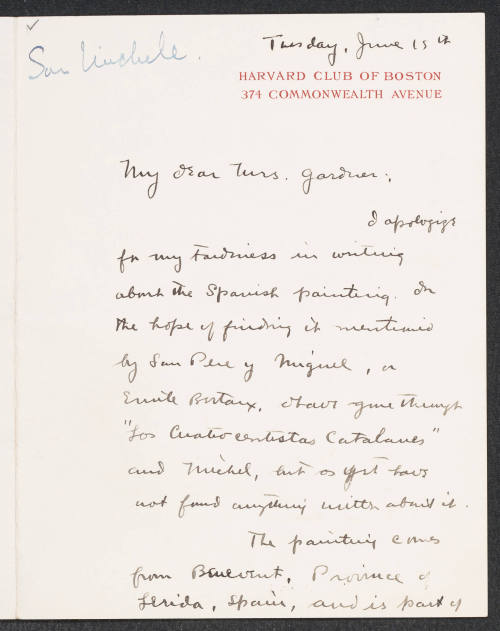 San Michele.
Tuesday, June 15th
HARVARD CLUB OF BOSTON
374 COMMONWEALTH AVENUE
My dear Mrs. Gardner:,
I apologize
for my tardiness in writing
about the Spanish painting. In
the hope of finding it mentioned
by San Pere y Miguel, or
Emile Bertaux, I have gone through
"Los Cuatrocentistas Catalanes"
and Michel, but as yet have
not found anything written about it.
The painting comes
from Benevent, Province of
Lerida, Spain, and is part of